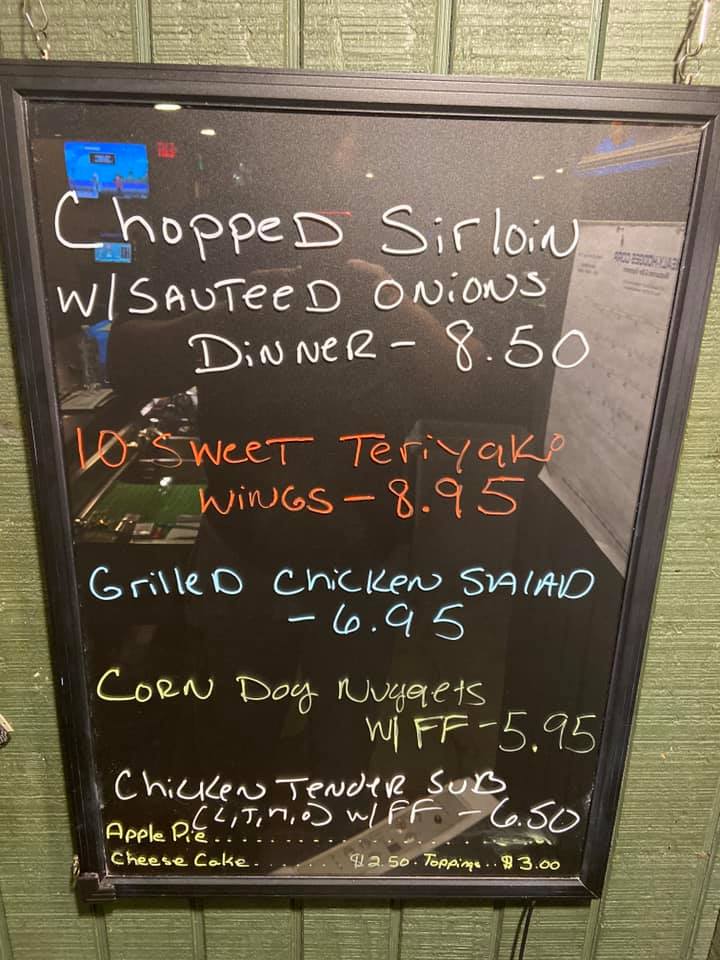 Chopped Sirloin
W/SAUTEED ONIONS
DINNER - 8.50
10 SWEET TeriyaKi
WINGS - 8.95
GrilleD Chicken SALAD
- 6.95
CORN Dog Nuggets
W/ FF - 5.95
Chicken TENDER SUB
(L,T,M,O) W/FF - 6.50
Apple Pie
Cheese Cake. $2.50. Toppings.. $3.00